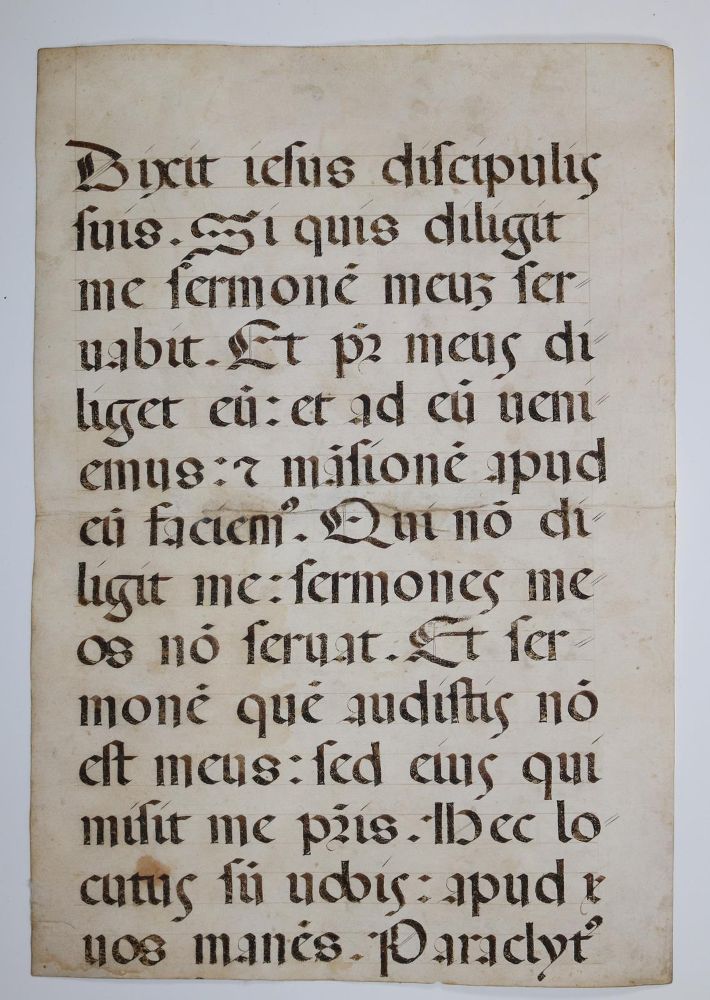 Dixit iesus discipulis
suis. Si quis diligit
me sermonē meuꝫ ser⸗
uabit. Et pr̄ meus di⸗
liget eū: et ad eū ueni⸗
emus: ⁊ māsionē apud
eū faciemꝰ. Qui nō di⸗
ligit me: sermones me⸗
os nō seruat. Et ser⸗
monē quē audistis nō
est meus: sed eius qui
misit me pr̄is. Hec lo⸗
cutus sū uobis: apud
uos manēs. Paraclytꝰ